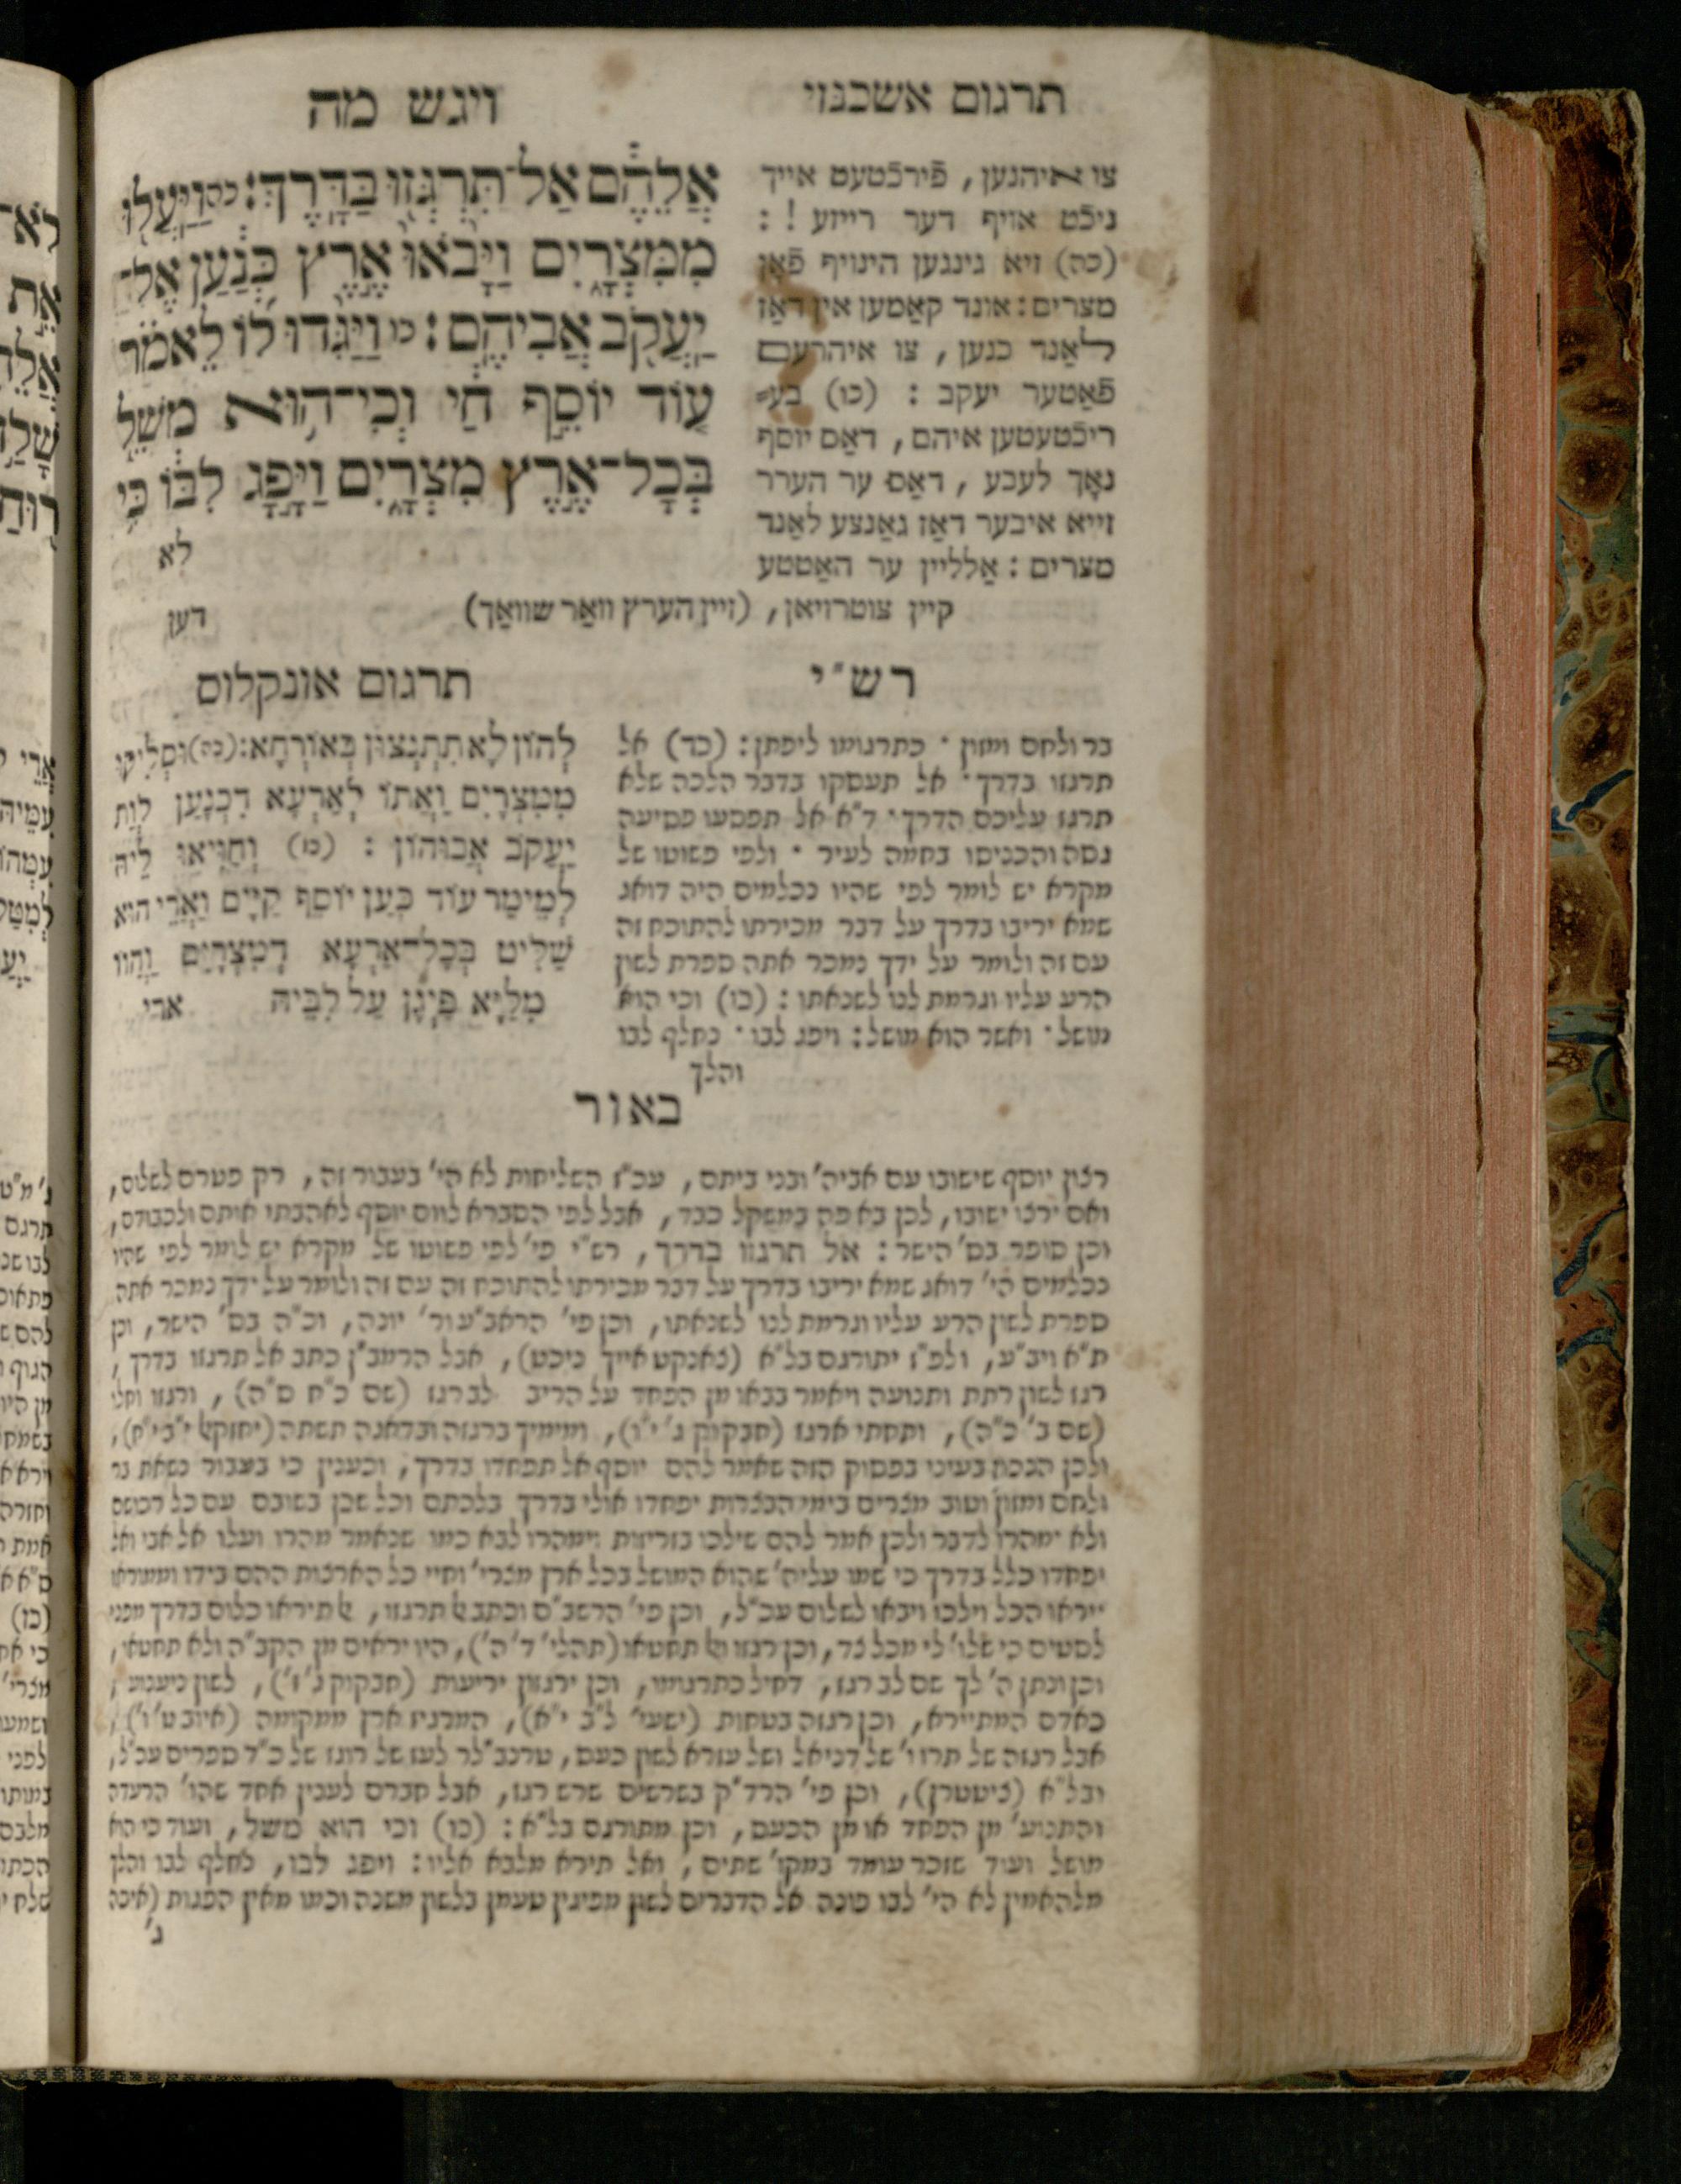 תרגום אשכנזי
ויגש מה
צו איהנען, פֿירכֿטעט אייך
ניכֿט אויף דער רייזע !:
(כה) זיא גינגען הינויף פֿאָן
מצרים: אונד קאַמען אין דאַז
לאַנד כנען, צו איהרעם
פֿאַטער יעקב : (כו) בע⸗
ריכֿטעטען איהם, דאַס יוסף
נאָך לעבע, דאַס ער הערר
זייא איבער דאַז גאַנצע לאַנד
מצרים: אַלליין ער האַטטע
קיין צוטרויאן, (זיין הערץ וואַר שוואַך)
דען
אֲלֵהֶ֔ם אַֽל־תִּרְגְּז֖וּ בַּדָּֽרֶךְ׃ כה וַֽיַּעֲל֖וּ
מִמִּצְרָ֑יִם וַיָּבֹ֙אוּ֙ אֶ֣רֶץ כְּנַ֔עַן אֶֽל־
יַעֲקֹ֖ב אֲבִיהֶֽם׃ כו וַיַּגִּ֨דוּ ל֜וֹ לֵאמֹ֗ר
ע֚וֹד יוֹסֵ֣ף חַ֔י וְכִֽי־ה֥וּא מֹשֵׁ֖ל
בְּכָל־אֶ֣רֶץ מִצְרָ֑יִם וַיָּ֣פָג לִבּ֔וֹ כִּ֥י
לא
רש״י
בר ולחם ומזון · כתרגומו ליפתן: (כד) אל
תרגזו בדרך · אל תעסקו בדבר הלכה שלא
תרגז עליכם הדרך · ד״א אל תפסעו פסיעה
גסה והכניסו בחמה לעיר · ולפי פשוטו של
מקרא יש לומר לפי שהיו נכלמים היה דואג
שמא יריבו בדרך על דבר מכירתו להתוכח זה
עם זה ולומר על ידך נמכר אתה ספרת לשון
הרע עליו וגרמת לנו לשנאתו : (כו) וכי הוא
מושל · ואשר הוא מושל: ויפג לבו · נחלף לבו
והלך
תרגום אונקלוס
לְהוֹן לָא תִתְנְצוּן בְּאוֹרְחָא: (כה) וּסְלִיקוּ
מִמִּצְרָיִם וַאֲתוֹ לְאַרְעָא דִכְנָעַן לְוָת
יַעֲקֹב אֲבוּהוֹן : (כו) וְחַוִּיאוּ לֵיהּ
לְמֵימַר עוֹד כְּעַן יוֹסֵף קַיָּים וַאֲרֵי הוּא
שַׁלִּיט בְּכָל־אַרְעָא דְמִצְרָיִם וַהֲווֹ
מִלַּיָּא פַּיְגָן עַל לִבֵּיהּ
ארי
באור
רצון יוסף שישובו עם אביה׳ ובני ביתם, עכ״ז השליחות לא הי׳ בעבור זה, רק פטרם לשלום,
ואם ירצו ישובו, לכן בא פה במשקל כבד, אבל לפי הסברא לוום יוסף לאהבתו איתם ולכבודם,
וכן סופר בס׳ הישר: אל תרגזו בדרך, רש״י פי׳ לפי פשוטו של מקרא יש לומר לפי שהיו
נכלמים הי׳ דואג שמא יריבו בדרך על דבר מכירתו להתוכח זה עם זה ולומר על ידך נמכר אתה
ספרת לשון הרע עליו וגרמת לנו לשנאתו, וכן פי׳ הראב״ע ור׳ יונה, וכ״ה בס׳ הישר, וכן
ת״א ויב״ע, ולפ״ז יתורגם בל״א (צאנקט אייך ניכט), אבל הרמב״ן כתב אל תרגזו בדרך,
רגז לשון רתת ותנועה ויאמר בבאו מן הפחד על הריב לב רגז (שם כ״ח ס״ה), ורגזו וחלו
(שם ב׳ כ״ה), ותחתי ארגז (חבקוק ג׳ י״ו), ומימיך ברגזה ובדאגה תשתה (יחזקאל י״ב י״ח),
ולכן הנכון בעיני בפסוק הזה שאמר להם יוסף אל תפחדו בדרך, וכענין כי בעבור נשאת בר
ולחם ומזון וטוב מצרים בימי הבצרות יפחדו אולי בדרך בלכתם וכל שכן בשובם עם כל רכושם
ולא ימהרו לדבר ולכן אמר להם שילכו בזריזות וימהרו לבא כמו שנאמר מהרו ועלו אל אבי ואל
יפחדו כלל בדרך כי שמו עליה׳ שהוא המושל בכל ארץ מצרי׳ וחיי כל הארצות ההם בידו וממוראו
ייראו הכל וילכו ויבאו לשלום עכ״ל, וכן פי׳ הרשב״ם וכתב אל תרגזו, אל תיראו כלום בדרך מפני
לסטים כי שלו׳ לי מכל צד, וכן רגזו ואל תחטאו (תהלי׳ ד׳ ה׳), היו יראים מן הקב״ה ולא תחטאו,
וכן ונתן ה׳ לך שם לב רגז, דחיל כתרגומו, וכן ירגזון יריעות (חבקוק ג׳ ז׳), לשון ניענוע,
כאדם המתיירא, וכן רגזה בטחות (ישעי׳ ל״ב י״א), המרגיז ארץ ממקומה (איוב ט׳ ו׳),
אבל רגזה של תרי ו׳ של דניאל ושל עזרא לשון כעס, טרנב״לר לעז של רוגז של כ״ד ספרים עכ״ל,
ובל״א (ציטטרן), וכן פי׳ הרד״ק בשרשים שרש רגז, אבל חברם לענין אחד שהו׳ הרעדה
והתנוע׳ מן הפחד או מן הכעס, וכן מתורגם בל״א: (כו) וכי הוא מושל, ועוד כי הוא
מושל ועוד שזכר עומד במקו׳ שתים, ואל תירא מלבא אליו: ויפג לבו, נחלף לבו והלך
מלהאמין לא הי׳ לבו פונה אל הדברים לשון מפיגין טעמן בלשון משנה וכמו מאין הפגות (איכה
ג׳